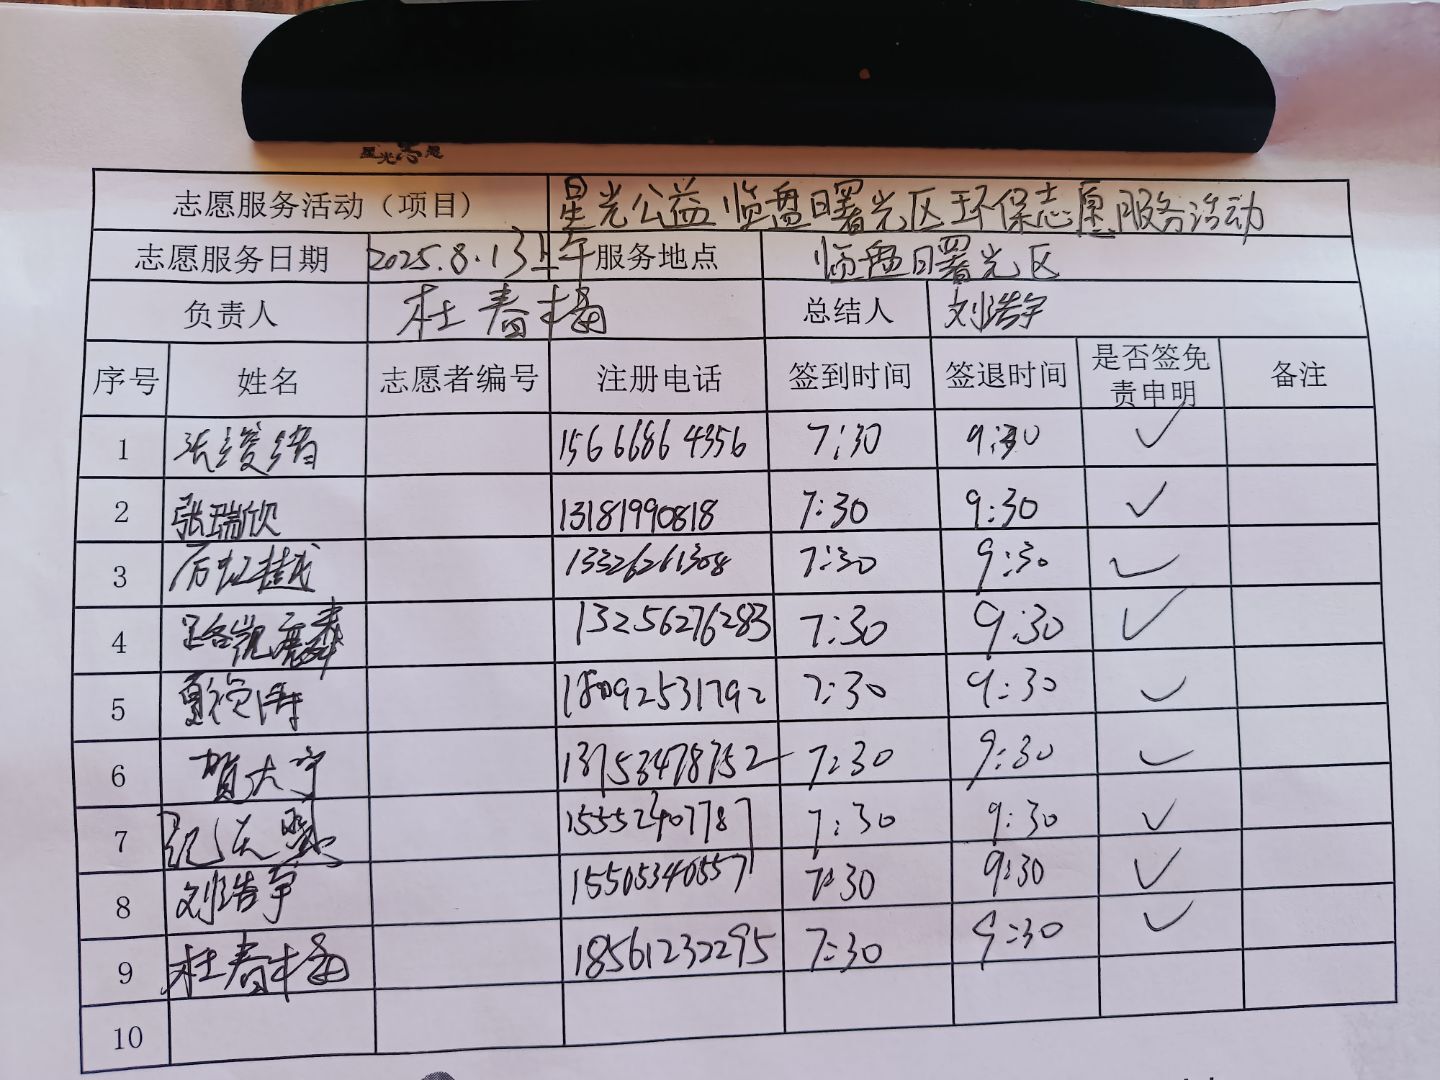 星光志愿
志愿服务活动（项目） 星光公益临盘曙光区环保志愿服务活动
志愿服务日期 2025.8.13上午 服务地点 临盘曙光区
负责人 杜春梅 总结人 刘浩宇
序号 姓名 志愿者编号 注册电话 签到时间 签退时间 是否签免责申明 备注
1 张峻绪 15666864356 7:30 9:30 ✓
2 张瑞欣 13181990818 7:30 9:30 ✓
3 厉虹越 13326261308 7:30 9:30 ✓
4 13256276283 7:30 9:30 ✓
5 18092531792 7:30 9:30 ✓
6 贺大宁 13753478752 7:30 9:30 ✓
7 15552407787 7:30 9:30 ✓
8 刘浩宇 15505340557 7:30 9:30 ✓
9 杜春梅 18561232295 7:30 9:30 ✓
10